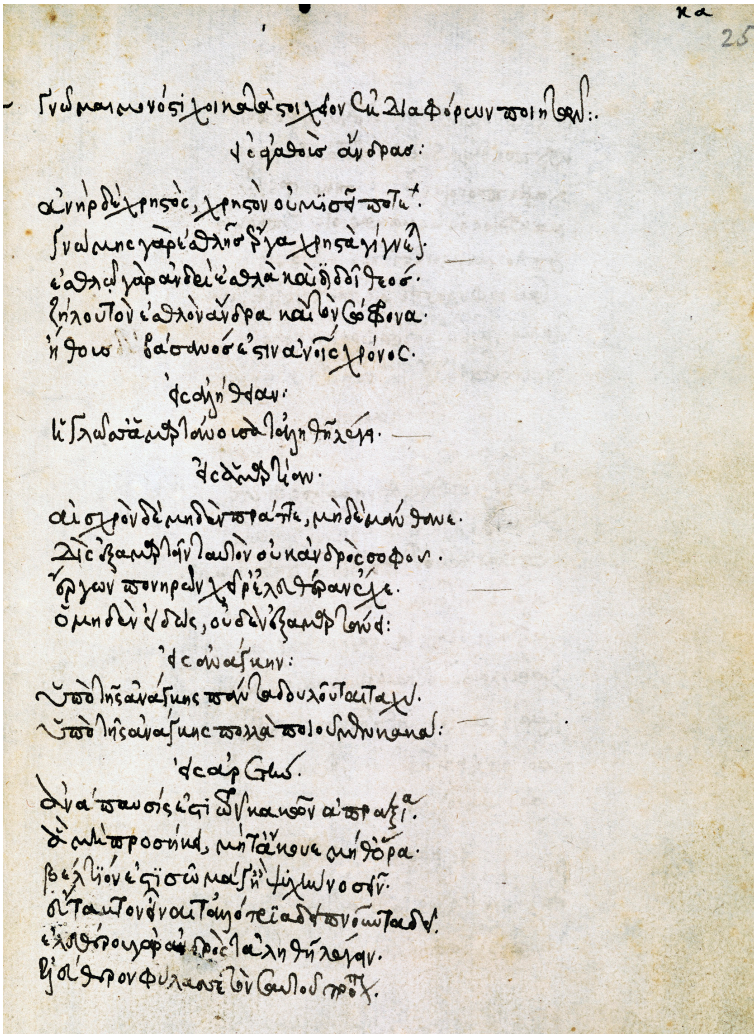 κα
25
Γνῶμαι μονόστιχοι κατὰ στοιχεῖον ἐκ διαφόρων ποιητῶν:
εἰς ἀγαθοὺς ἄνδρας:
ἀνὴρ δὲ χρηστὸς, χρηστὸν οὐ μισεῖ ποτε.
γνώμης γὰρ ἐσθλῆς ἔργα χρηστὰ γίγνεται.
ἐσθλῷ γὰρ ἀνδρὶ ἐσθλὰ καὶ διδοῖ θεός.
ζήλου τὸν ἐσθλὸν ἄνδρα καὶ τὸν σώφρονα.
ἤθους βάσανος ἐστιν ἀνθρώποις χρόνος.
εἰς ἀλήθειαν.
εἰς ἁμαρτίαν.
αἰσχρὸν δὲ μηδὲν πράττε, μηδὲ μάνθανε.
δὶς ἐξαμαρτεῖν ταυτὸν οὐκ ἀνδρὸς σοφοῦ.
ἔργων πονηρῶν χεῖρ' ἐλευθέραν ἔχε.
ὁ μηδὲν εἰδὼς, οὐδὲν ἐξαμαρτάνει:
εἰς ἀνάγκην:
ὑπὸ τῆς ἀνάγκης πάντα δουλοῦται ταχύ.
ὑπὸ τῆς ἀνάγκης πολλὰ ποιοῦμεν κακά:
εἰς ἀργίαν.
ἀνάπαυσίς ἐστι τῶν κακῶν ἀπραξία.
ἃ μὴ προσήκει, μήτ' ἄκουε μήθ' ὅρα.
βέλτιόν ἐστι σῶμα γ' ἢ ψυχὴν νοσεῖν.
ἐλευθέρου γὰρ ἀνδρὸς τἀληθῆ λέγειν.